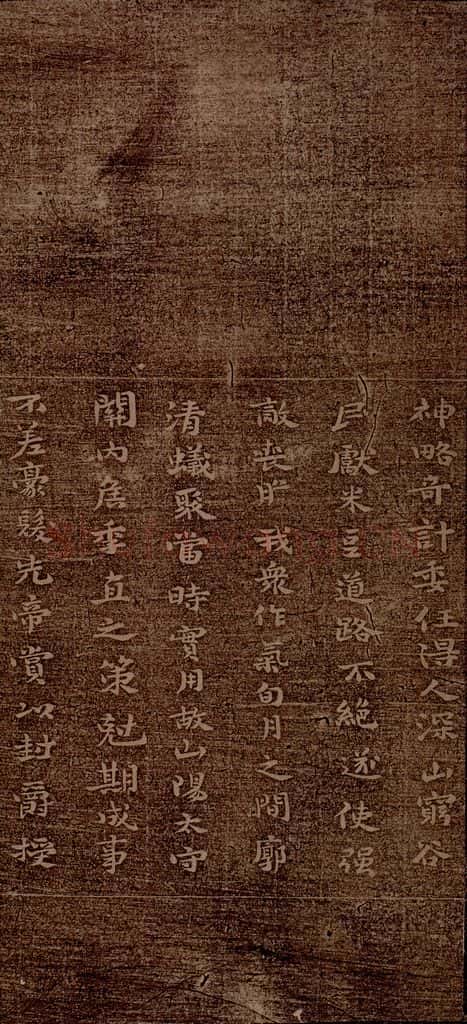 神略奇計委任得人深山窮谷
民獻米豆道路不絶遂使强
敵喪膽我衆作氣旬月之間廓
清蟻聚當時實用故山陽太守
關内侯季直之策尅期成事
不差豪髮先帝賞以封爵授